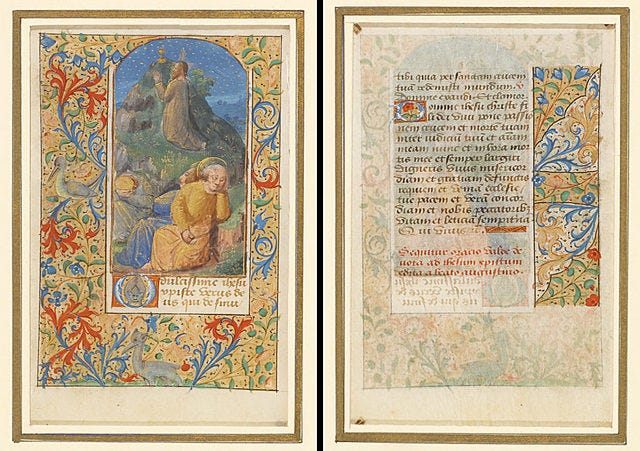 O dulcissime ihesu
xpiste verus de
us qui de sinu
tibi quia per sanctam crucem
tuā redemisti mundum. V
Domine exaudi. Et clamor.
Domine ihesu christe fi
li dei vivi pone passio
nem crucem et mortē tuam
inter iudiciū tuū et animā
meam nunc et in hora mor
tis mee et semper largiri
digneris vivis misericor
diam et gratiam defunctis
requiem et veniā ecclesie
tue pacem et verā concor
diam et nobis peccatoribꝫ
vitam et leticiā sempiternā
Qui vivis
Sequitur oracio valde de
vota ad ihesum xpistum
edita a beato augustino.